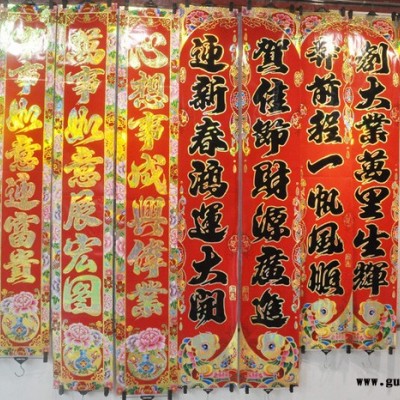 劍大業萬里生輝
奔前程一帆風順
賀佳節財源廣進
迎新春鴻運大開
心想事成興偉業
萬事如意展宏图
事如意迎富貴
www.gu